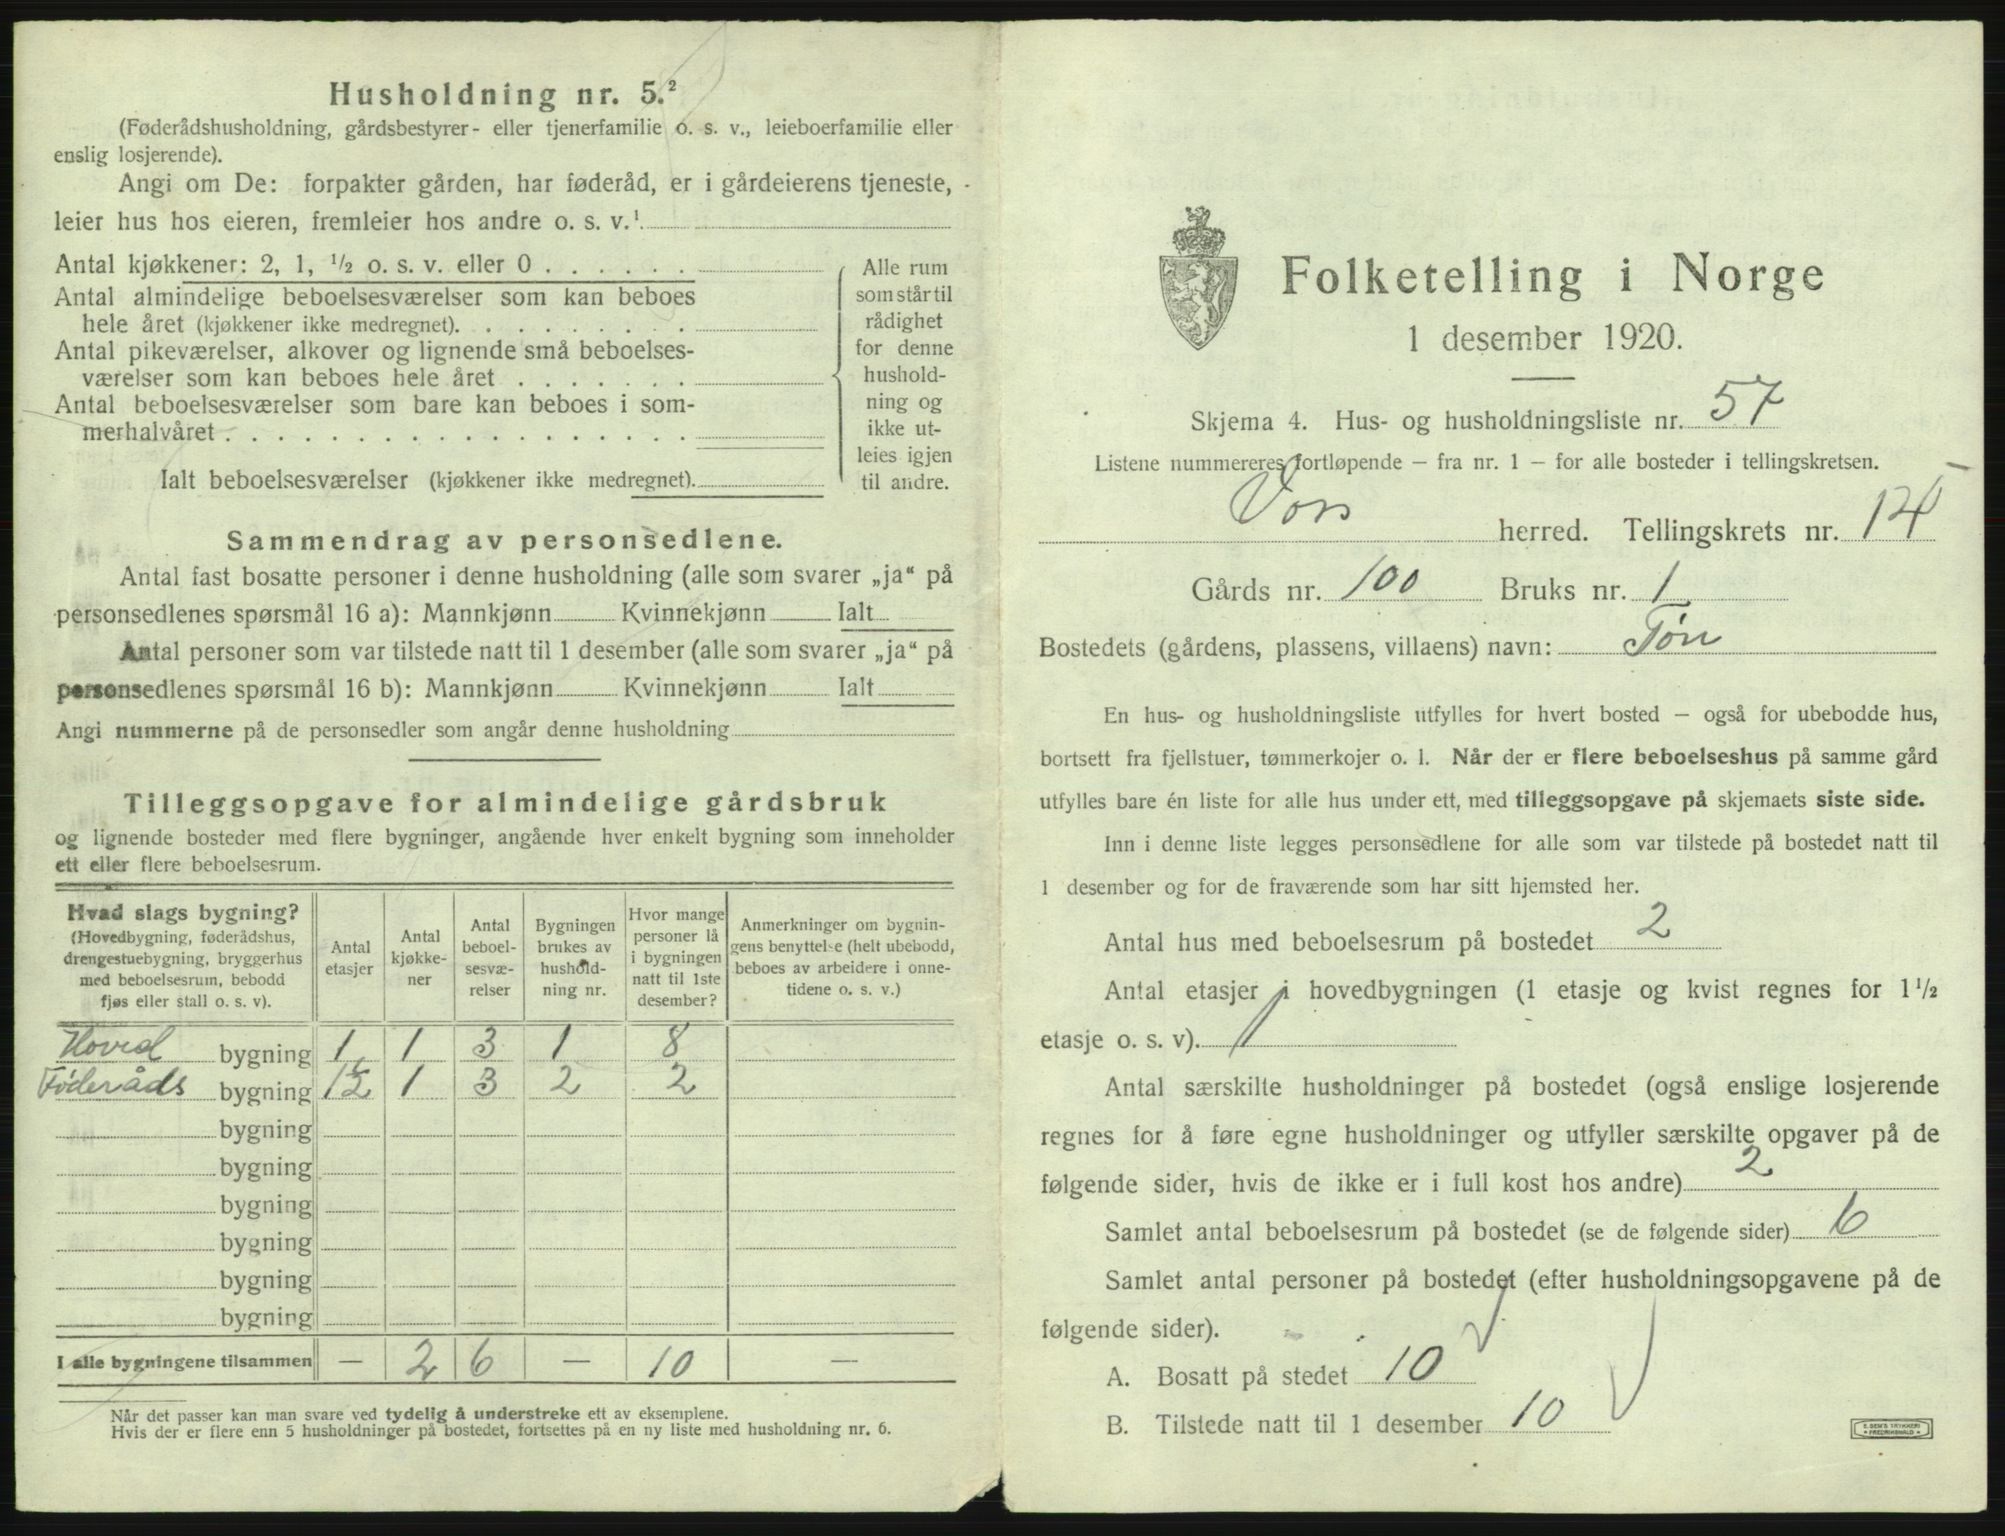 Husholdning nr. 5.²
(Føderådshusholdning, gårdsbestyrer- eller tjenerfamilie o. s. v., leieboerfamilie eller
enslig losjerende).
Angi om De: forpakter gården, har føderåd, er i gårdeierens tjeneste,
leier hus hos eieren, fremleier hos andre o. s. v.¹
Antal kjøkkener: 2, 1, ½ o. s. v. eller 0 . . . . . .
Antal almindelige beboelsesværelser som kan beboes
hele året (kjøkkener ikke medregnet). . . . . . . . .
Antal pikeværelser, alkover og lignende små beboelses-
værelser som kan beboes hele året . . . . . . .
Antal beboelsesværelser som bare kan beboes i som-
merhalvåret . . . . . . . . . . . . . . . . . .
Ialt beboelsesværelser (kjøkkener ikke medregnet).
Alle rum
som står til
rådighet
for denne
hushold-
ning og
ikke ut-
leies igjen
til andre.
Sammendrag av personsedlene.
Antal fast bosatte personer i denne husholdning (alle som svarer „ja“ på
personsedlenes spørsmål 16 a): Mannkjønn Kvinnekjønn Ialt
Antal personer som var tilstede natt til 1 desember (alle som svarer „ja“ på
personsedlenes spørsmål 16 b): Mannkjønn Kvinnekjønn Ialt
Angi nummerne på de personsedler som angår denne husholdning
Tilleggsopgave for almindelige gårdsbruk
og lignende bosteder med flere bygninger, angående hver enkelt bygning som inneholder
ett eller flere beboelsesrum.
Hvad slags bygning?
(Hovedbygning, føderådshus,
drengestuebygning, bryggerhus
med beboelsesrum, bebodd
fjøs eller stall o. s. v).
Antal
etasjer
Antal
kjøkke-
ner
Antal
beboel-
sesvæ-
relser
Bygningen
brukes av
hushold-
ning nr.
Hvor mange
personer lå
i bygningen
natt til 1ste
desember?
Anmerkninger om bygnin-
gens benyttelse (helt ubebodd,
beboes av arbeidere i onne-
tidene o. s. v.)
Hoved bygning 1 1 3 1 8
Føderåds bygning 1½ 1 3 2 2
bygning
bygning
bygning
bygning
bygning
bygning
I alle bygningene tilsammen — 2 6 — 10 —
Når det passer kan man svare ved tydelig å understreke ett av eksemplene.
Hvis der er flere enn 5 husholdninger på bostedet, fortsettes på en ny liste med husholdning nr. 6.
Folketelling i Norge
1 desember 1920.
Skjema 4. Hus- og husholdningsliste nr. 57
Listene nummereres fortløpende — fra nr. 1 — for alle bosteder i tellingskretsen.
Voss herred. Tellingskrets nr. 14
Gårds nr. 100 Bruks nr. 1
Bostedets (gårdens, plassens, villaens) navn: Tøn
En hus- og husholdningsliste utfylles for hvert bosted — også for ubebodde hus,
bortsett fra fjellstuer, tømmerkojer o. l. Når der er flere beboelseshus på samme gård
utfylles bare én liste for alle hus under ett, med tilleggsopgave på skjemaets siste side.
Inn i denne liste legges personsedlene for alle som var tilstede på bostedet natt til
1 desember og for de fraværende som har sitt hjemsted her.
Antal hus med beboelsesrum på bostedet 2
Antal etasjer i hovedbygningen (1 etasje og kvist regnes for 1½
etasje o. s. v). 1
Antal særskilte husholdninger på bostedet (også enslige losjerende
regnes for å føre egne husholdninger og utfyller særskilte opgaver på de
følgende sider, hvis de ikke er i full kost hos andre) 2
Samlet antal beboelsesrum på bostedet (se de følgende sider) 6
Samlet antal personer på bostedet (efter husholdningsopgavene på de
følgende sider).
A. Bosatt på stedet 10
B. Tilstede natt til 1 desember 10